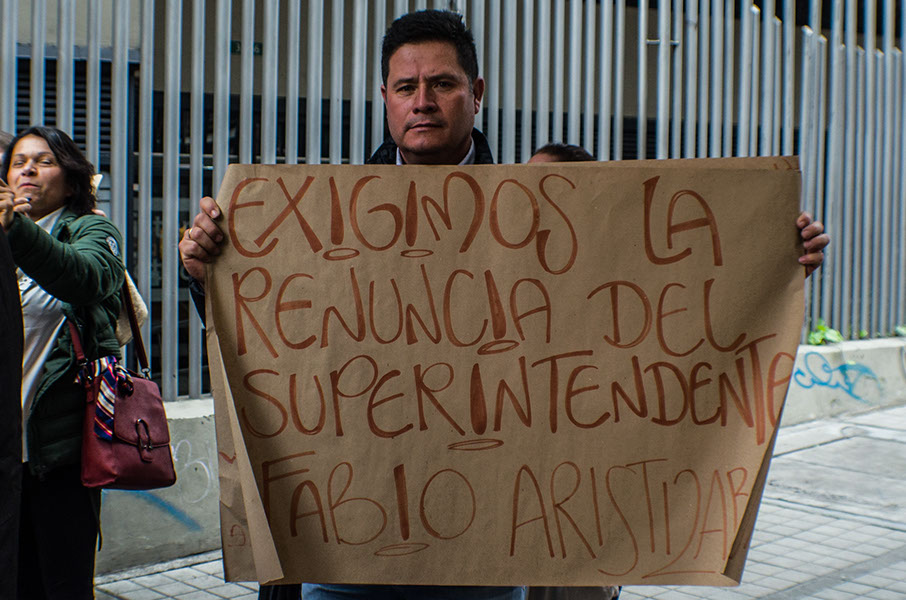 EXIGIMOS LA
RENUNCIA DEL
SUPERINTENDENTE
FABIO ARISTIZAR